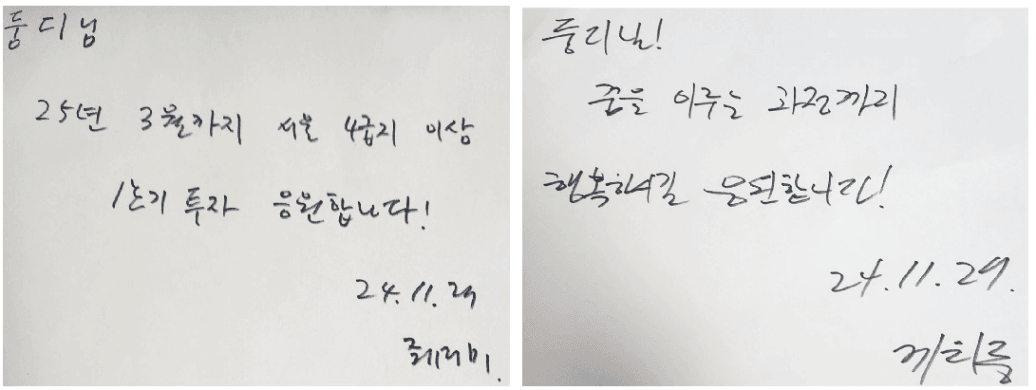 둥디님
25년 3월까지 서울 4급지 이상
1호기 투자 응원합니다!
24.11.29
둥디님!
꿈을 이루는 과정까지
행복하시길 응원합니다!
24.11.29.